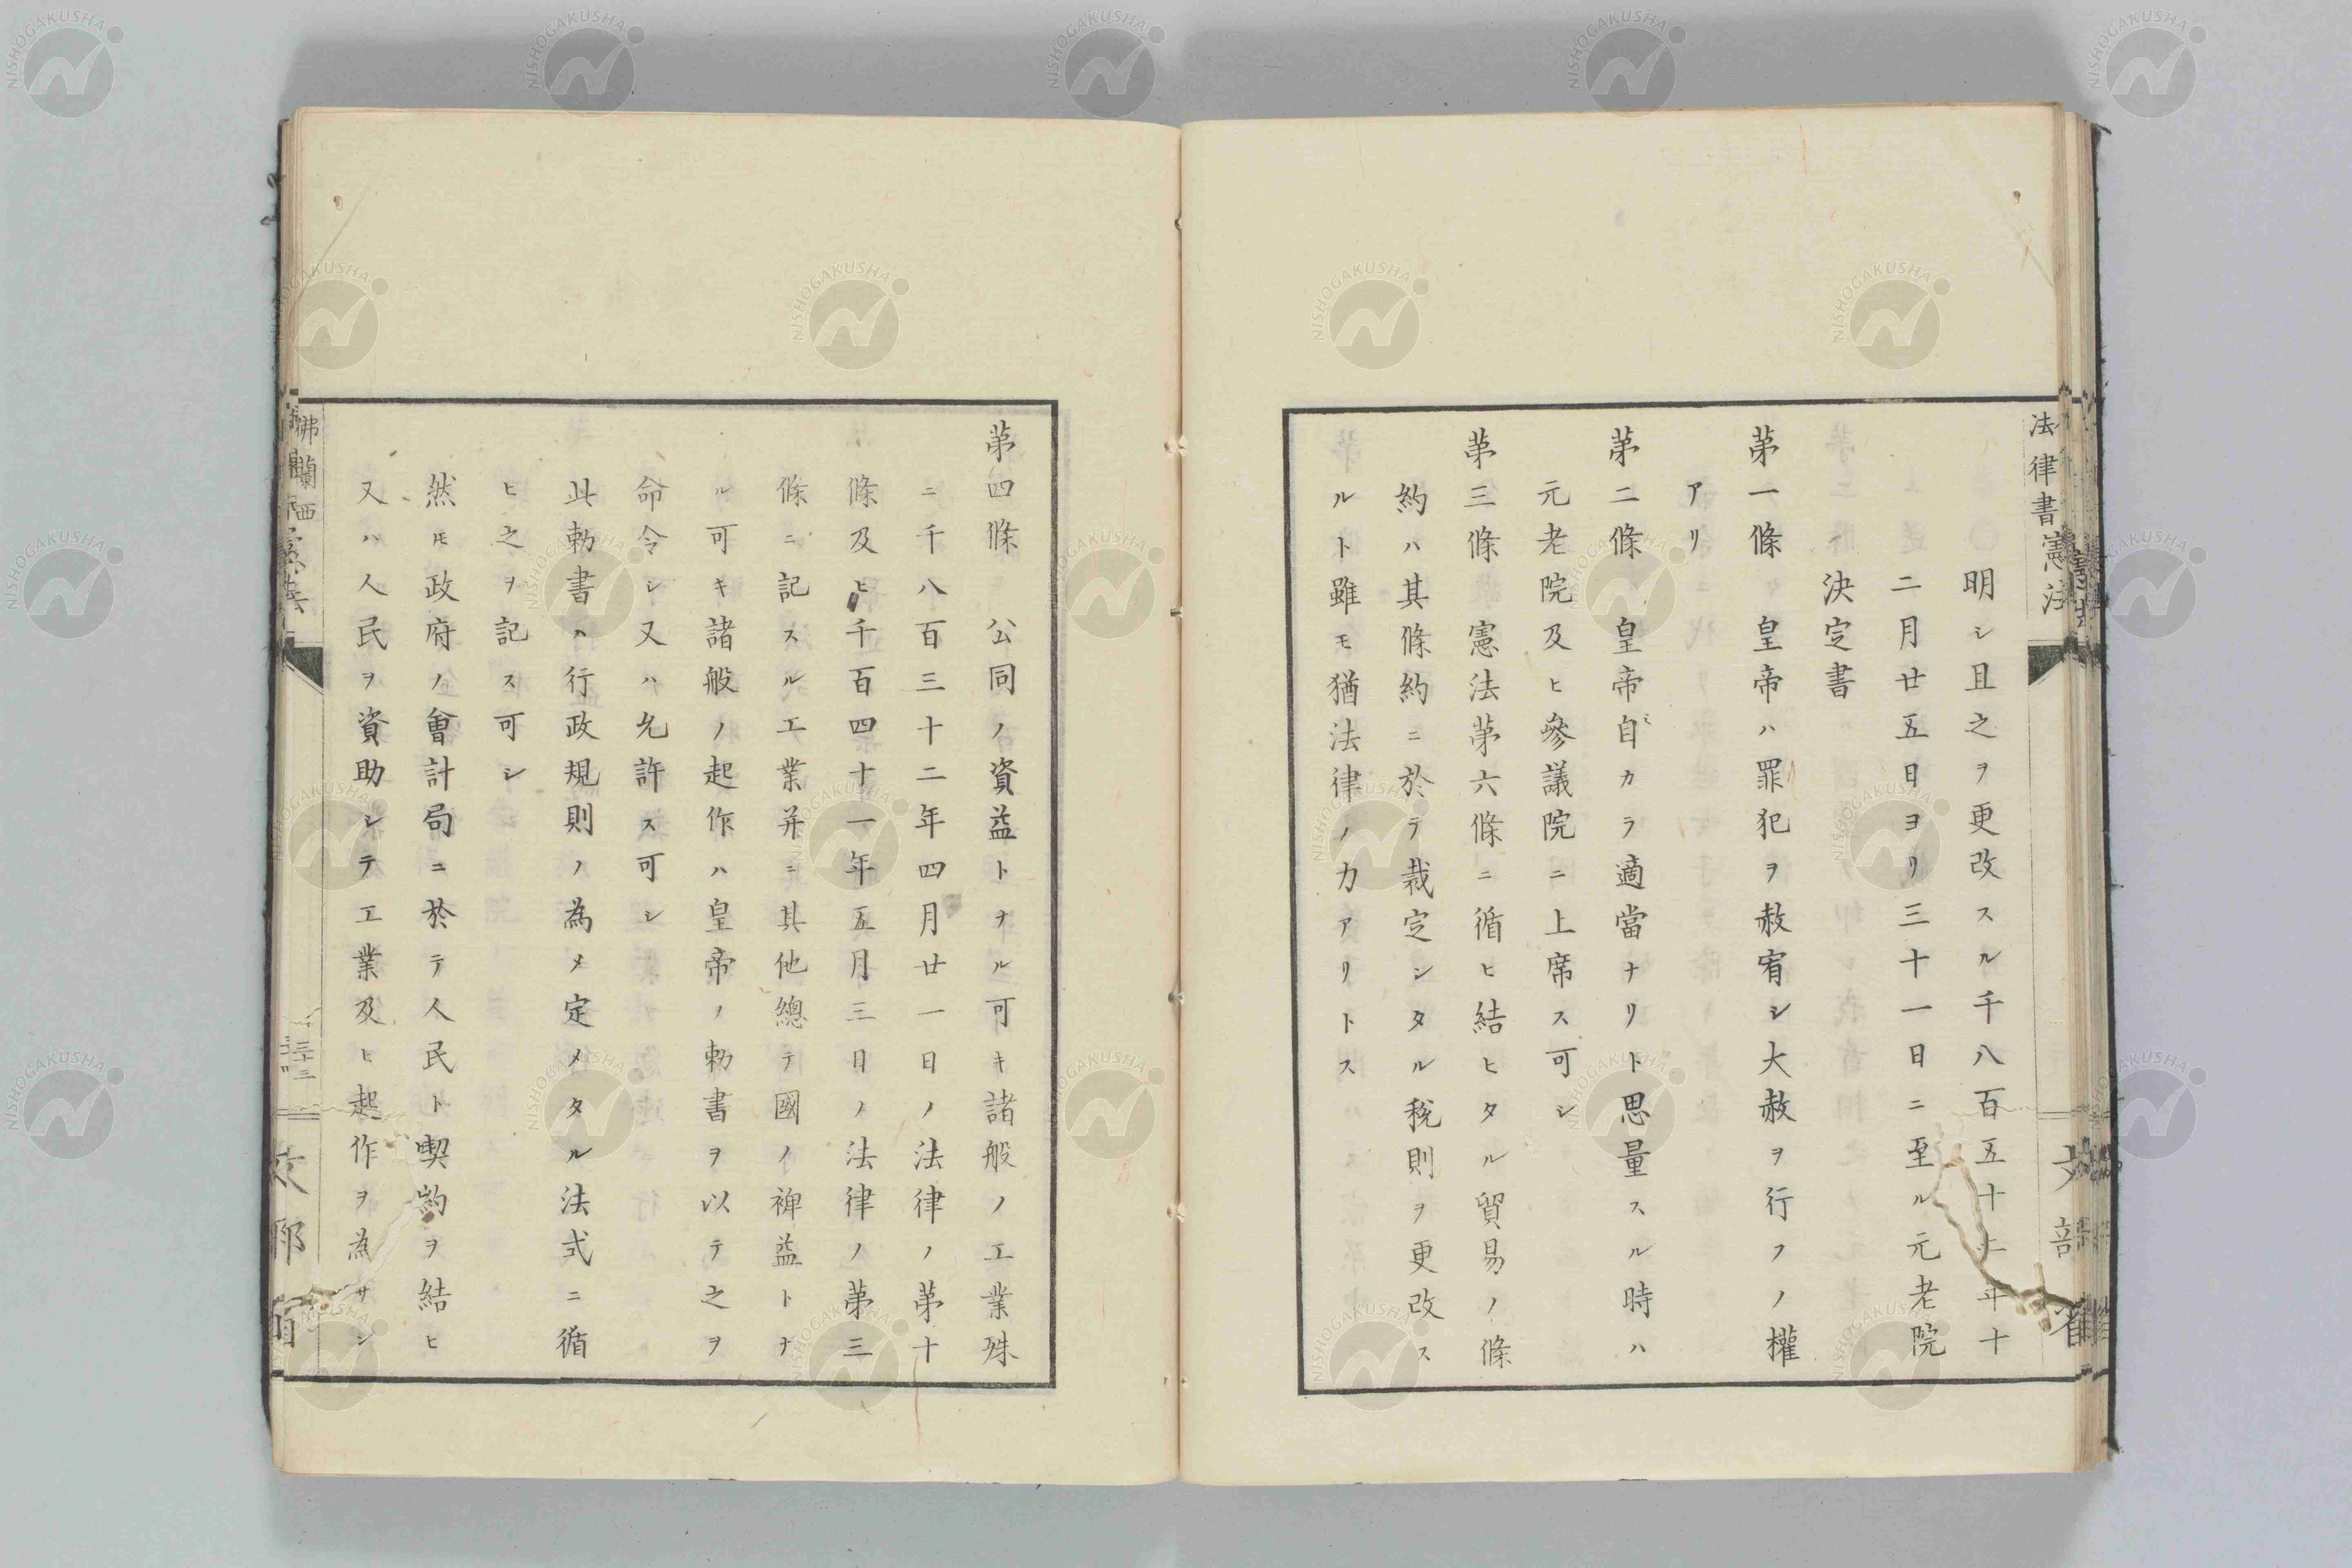 法律書 憲法
明シ且之ヲ更改スル千八百五十二年十
二月廿五日ヨリ三十一日ニ至ル元老院
決定書
苐一條 皇帝ハ罪犯ヲ赦宥シ大赦ヲ行フノ權
アリ
苐二條 皇帝自カラ適當ナリト思量スル時ハ
元老院及ヒ參議院ニ上席ス可シ
苐三條 憲法苐六條ニ循ヒ結ヒタル貿易ノ條
約ハ其條約ニ於テ裁定シタル稅則ヲ更改ス
ルト雖モ猶法律ノ力アリトス
文部省
苐四條 公同ノ資益トナル可キ諸般ノ工業殊
ニ千八百三十二年四月廿一日ノ法律ノ苐十
條及ヒ千百四十一年五月三日ノ法律ノ苐三
條ニ記スル工業并ニ其他總テ國ノ裨益トナ
ル可キ諸般ノ起作ハ皇帝ノ勅書ヲ以テ之ヲ
命令シ又ハ允許ス可シ
此勅書ハ行政規則ノ為メ定メタル法式ニ循
ヒ之ヲ記ス可シ
然𪜈政府ノ會計局ニ於テ人民ト喫約ヲ結ヒ
又ハ人民ヲ資助シテ工業及ヒ起作ヲ為サシ
佛蘭西
NISHOGAKUSHA